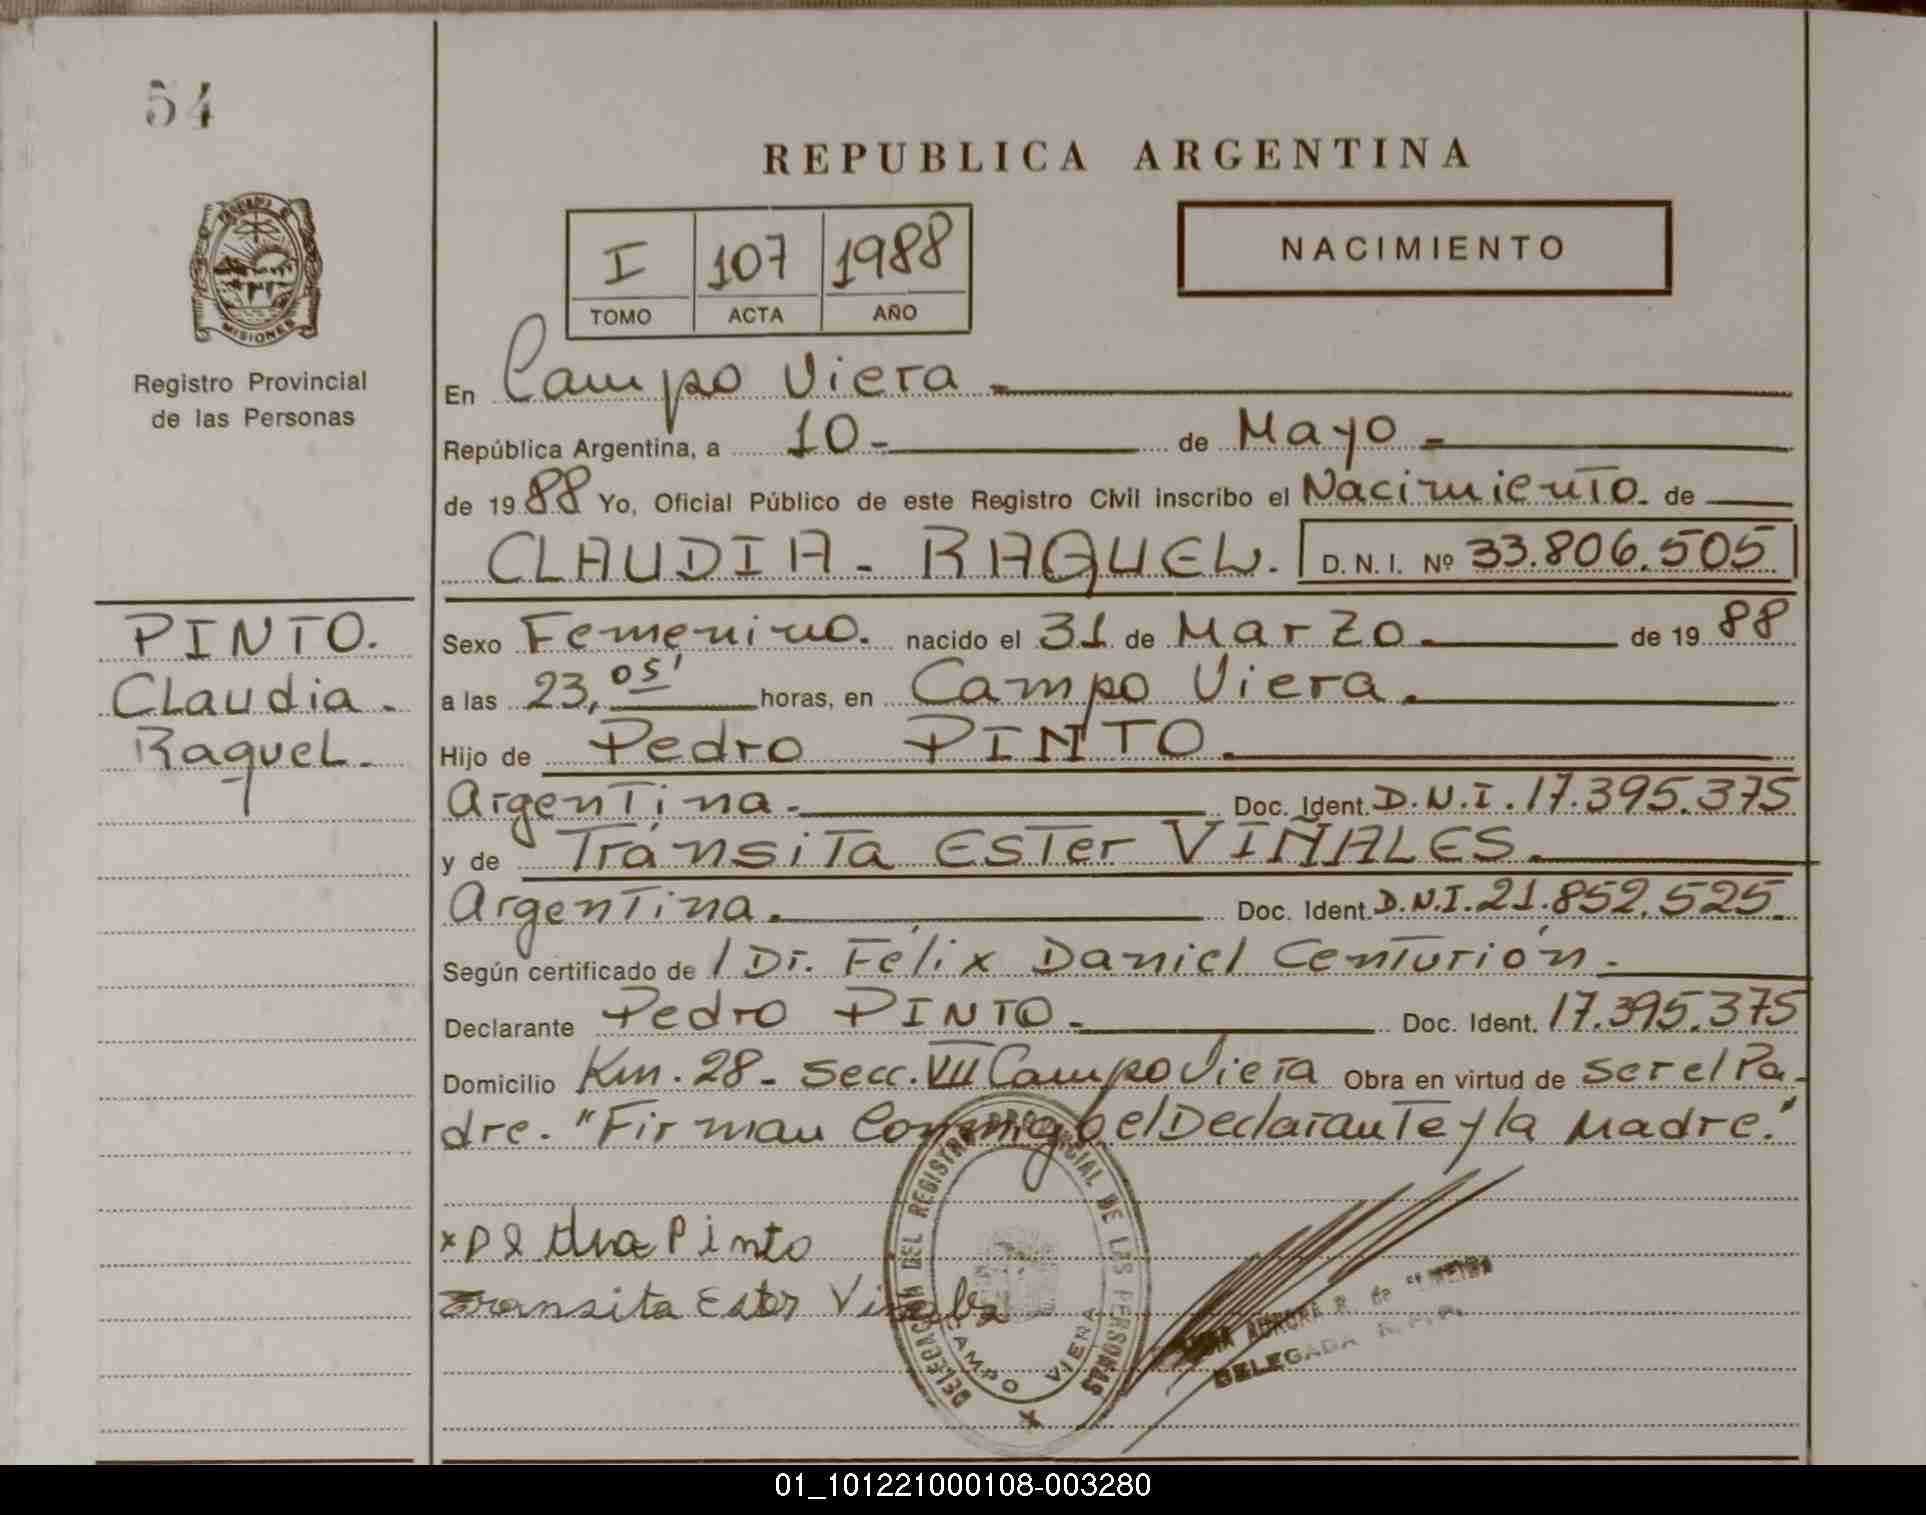 54
REPUBLICA ARGENTINA
MISIONES
Registro Provincial
de las Personas
I 107 1988
TOMO ACTA AÑO
NACIMIENTO
En Campo Viera -
República Argentina, a 10- de Mayo -
de 1988 Yo, Oficial Público de este Registro Civil inscribo el Nacimiento. de
CLAUDIA - RAQUEL. D. N. I. Nº 33.806.505
PINTO.
Claudia -
Raquel -
Sexo Femenino. nacido el 31 de Marzo - de 1988
a las 23,05' horas, en Campo Viera.
Hijo de Pedro PINTO.
Argentina. Doc. Ident. D.N.I. 17.395.375
y de Tránsita Ester VIÑALES.
Argentina. Doc. Ident. D.N.I. 21.852.525
Según certificado de / Dr. Félix Daniel Centurión.
Declarante Pedro PINTO. Doc. Ident. 17.395.375
Domicilio Km. 28 - Secc. VII Campo Viera Obra en virtud de ser el Pa-
dre. "Firman Conmigo el Declarante y la Madre."
x Pedro Pinto
Transita Ester Viñales
DELEGACION DEL REGISTRO PROVINCIAL DE LAS PERSONAS
CAMPO VIERA
AURORA R. de
DELEGADA R.P.P.
01_101221000108-003280